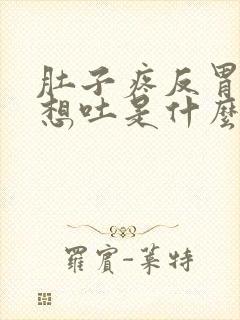 肚子疼反胃
想吐是什麼
羅賓-萊特